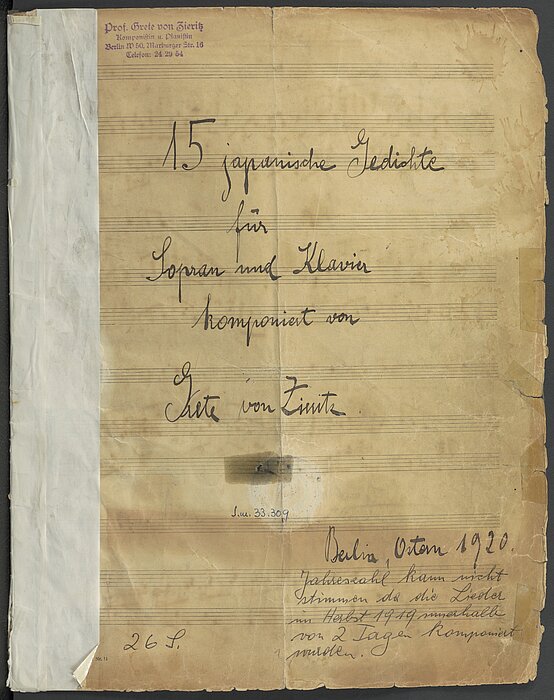 Prof. Grete von Zieritz
Komponistin u. Pianistin
Berlin W 50, Marburger Str. 16
Telefon: 24 29 54
15 japanische Gedichte
für
Sopran und Klavier
komponiert von
Grete von Zieritz.
S.m. 33.309
Berlin, Ostern 1920.
Jahreszahl kann nicht
stimmen da die Lieder
im Herbst 1919 innerhalb
von 2 Tagen komponiert
wurden.
26 S.